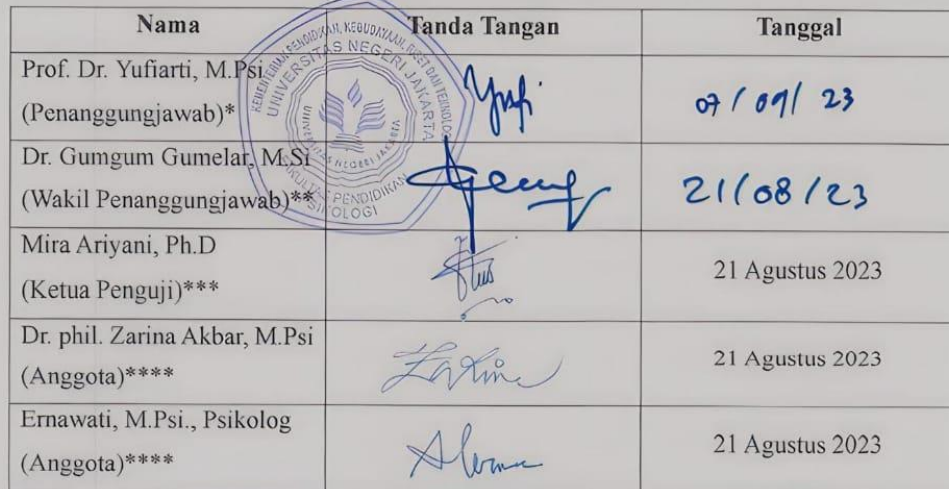 Nama Tanda Tangan Tanggal
Prof. Dr. Yufiarti, M.Psi
(Penanggungjawab)* 07/09/23
Dr. Gumgum Gumelar, M.Si
(Wakil Penanggungjawab)** 21/08/23
Mira Ariyani, Ph.D
(Ketua Penguji)*** 21 Agustus 2023
Dr. phil. Zarina Akbar, M.Psi
(Anggota)**** 21 Agustus 2023
Ernawati, M.Psi., Psikolog
(Anggota)**** 21 Agustus 2023
KEMENTERIAN PENDIDIKAN, KEBUDAYAAN, RISET DAN TEKNOLOGI
UNIVERSITAS NEGERI JAKARTA
UNIVERSITAS NEGERI JAKARTA
FAKULTAS PENDIDIKAN
PSIKOLOGI